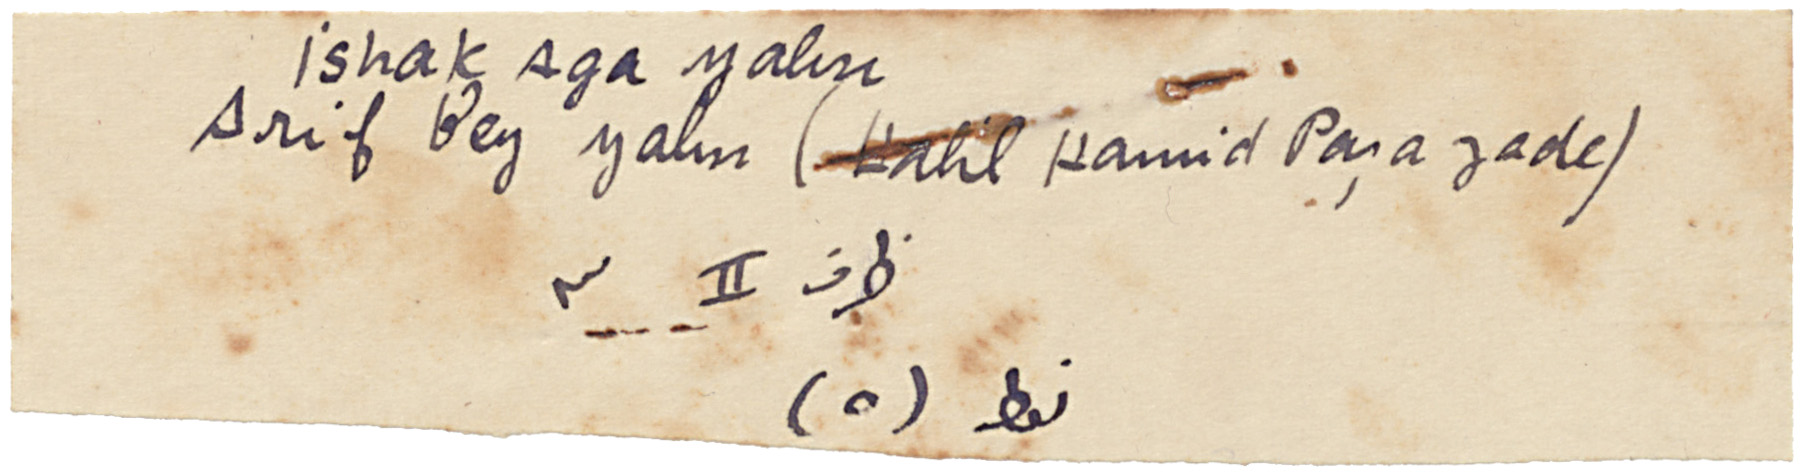 ishak Aga yalısı
Arif Bey yalısı (Halil Hamid Paşa zade)
II
(٥)